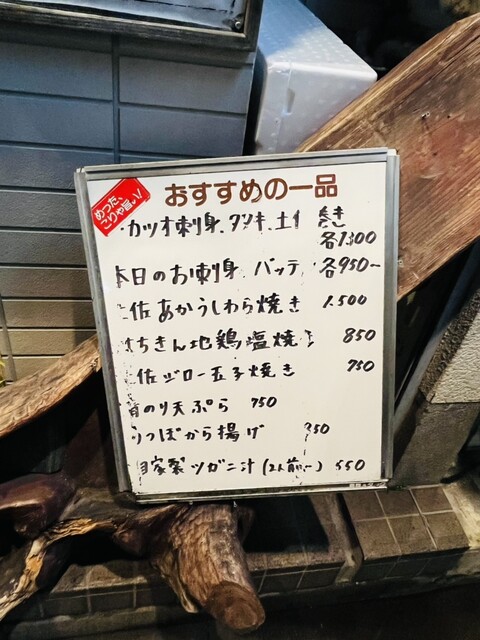 めった、
こりゃ旨。い!
おすすめの一品
カツオ刺身、タタキ、土
巻き
各1300
本日のお刺身 バッテ 各950-
佐あかうしわら焼き 1.500
はちきん地鶏塩焼き 850
佐ジロー玉子焼き 750
のり天ぷら 750
つぼから揚げ 750
自家製ツガニ汁(2人前〜) 550